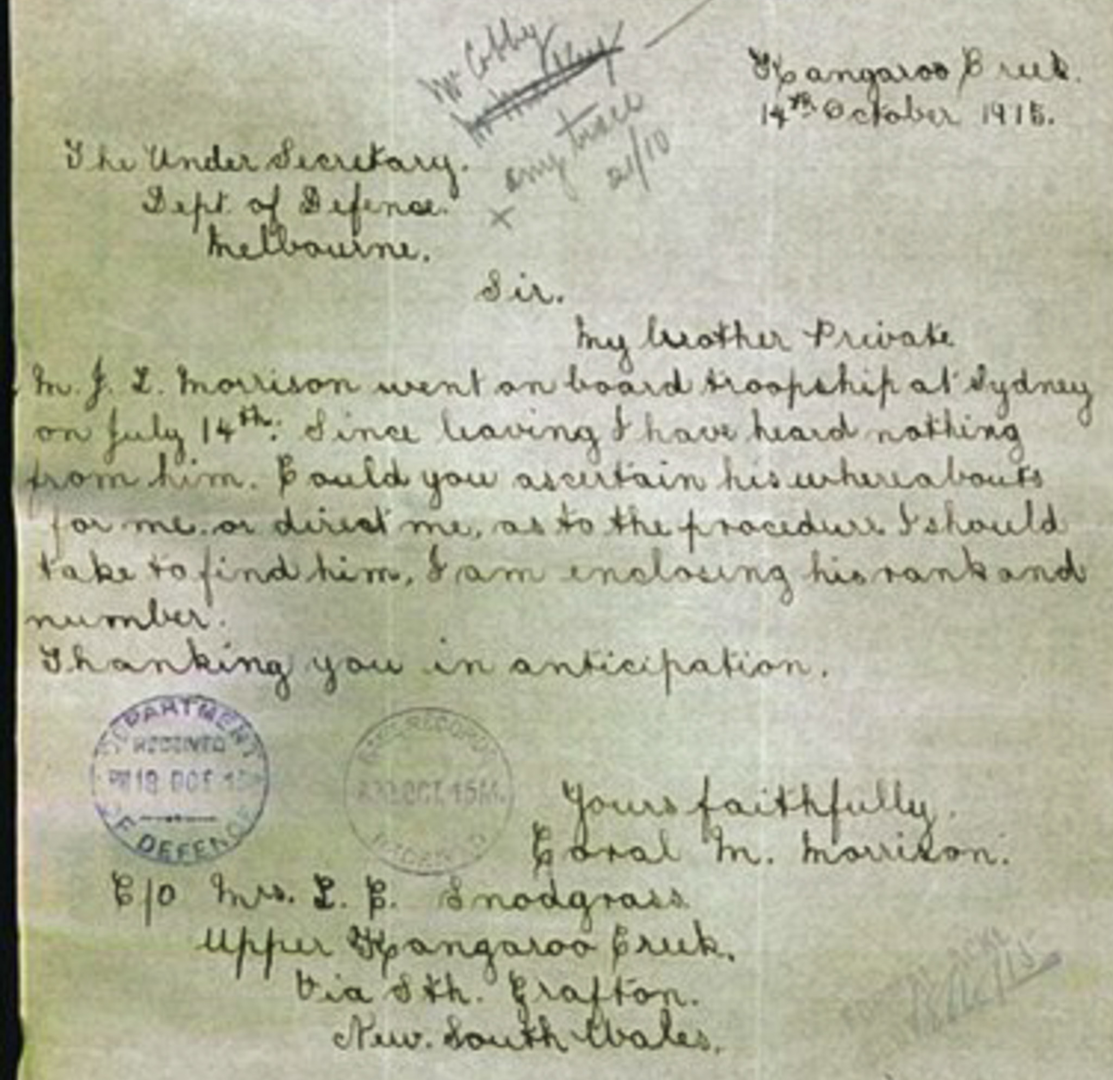 Mr Cobby
any trace
21/10
Kangaroo Creek.
14th October 1915.
The Under Secretary.
Dept. of Defence.
Melbourne.
Sir.
My brother Private
M. J. L. Morrison went on board troopship at Sydney
on July 14th: Since leaving I have heard nothing
from him. Could you ascertain his whereabouts
for me, or direct me, as to the procedure I should
take to find him, I am enclosing his rank and
number.
Thanking you in anticipation.
DEPARTMENT
RECEIVED
18 OCT 15
OF DEFENCE
OCT. 15
Yours faithfully.
Coral M. Morrison.
C/o Mrs. L. C. Snodgrass
Upper Kangaroo Creek.
Via Sth. Grafton.
New. South Wales.